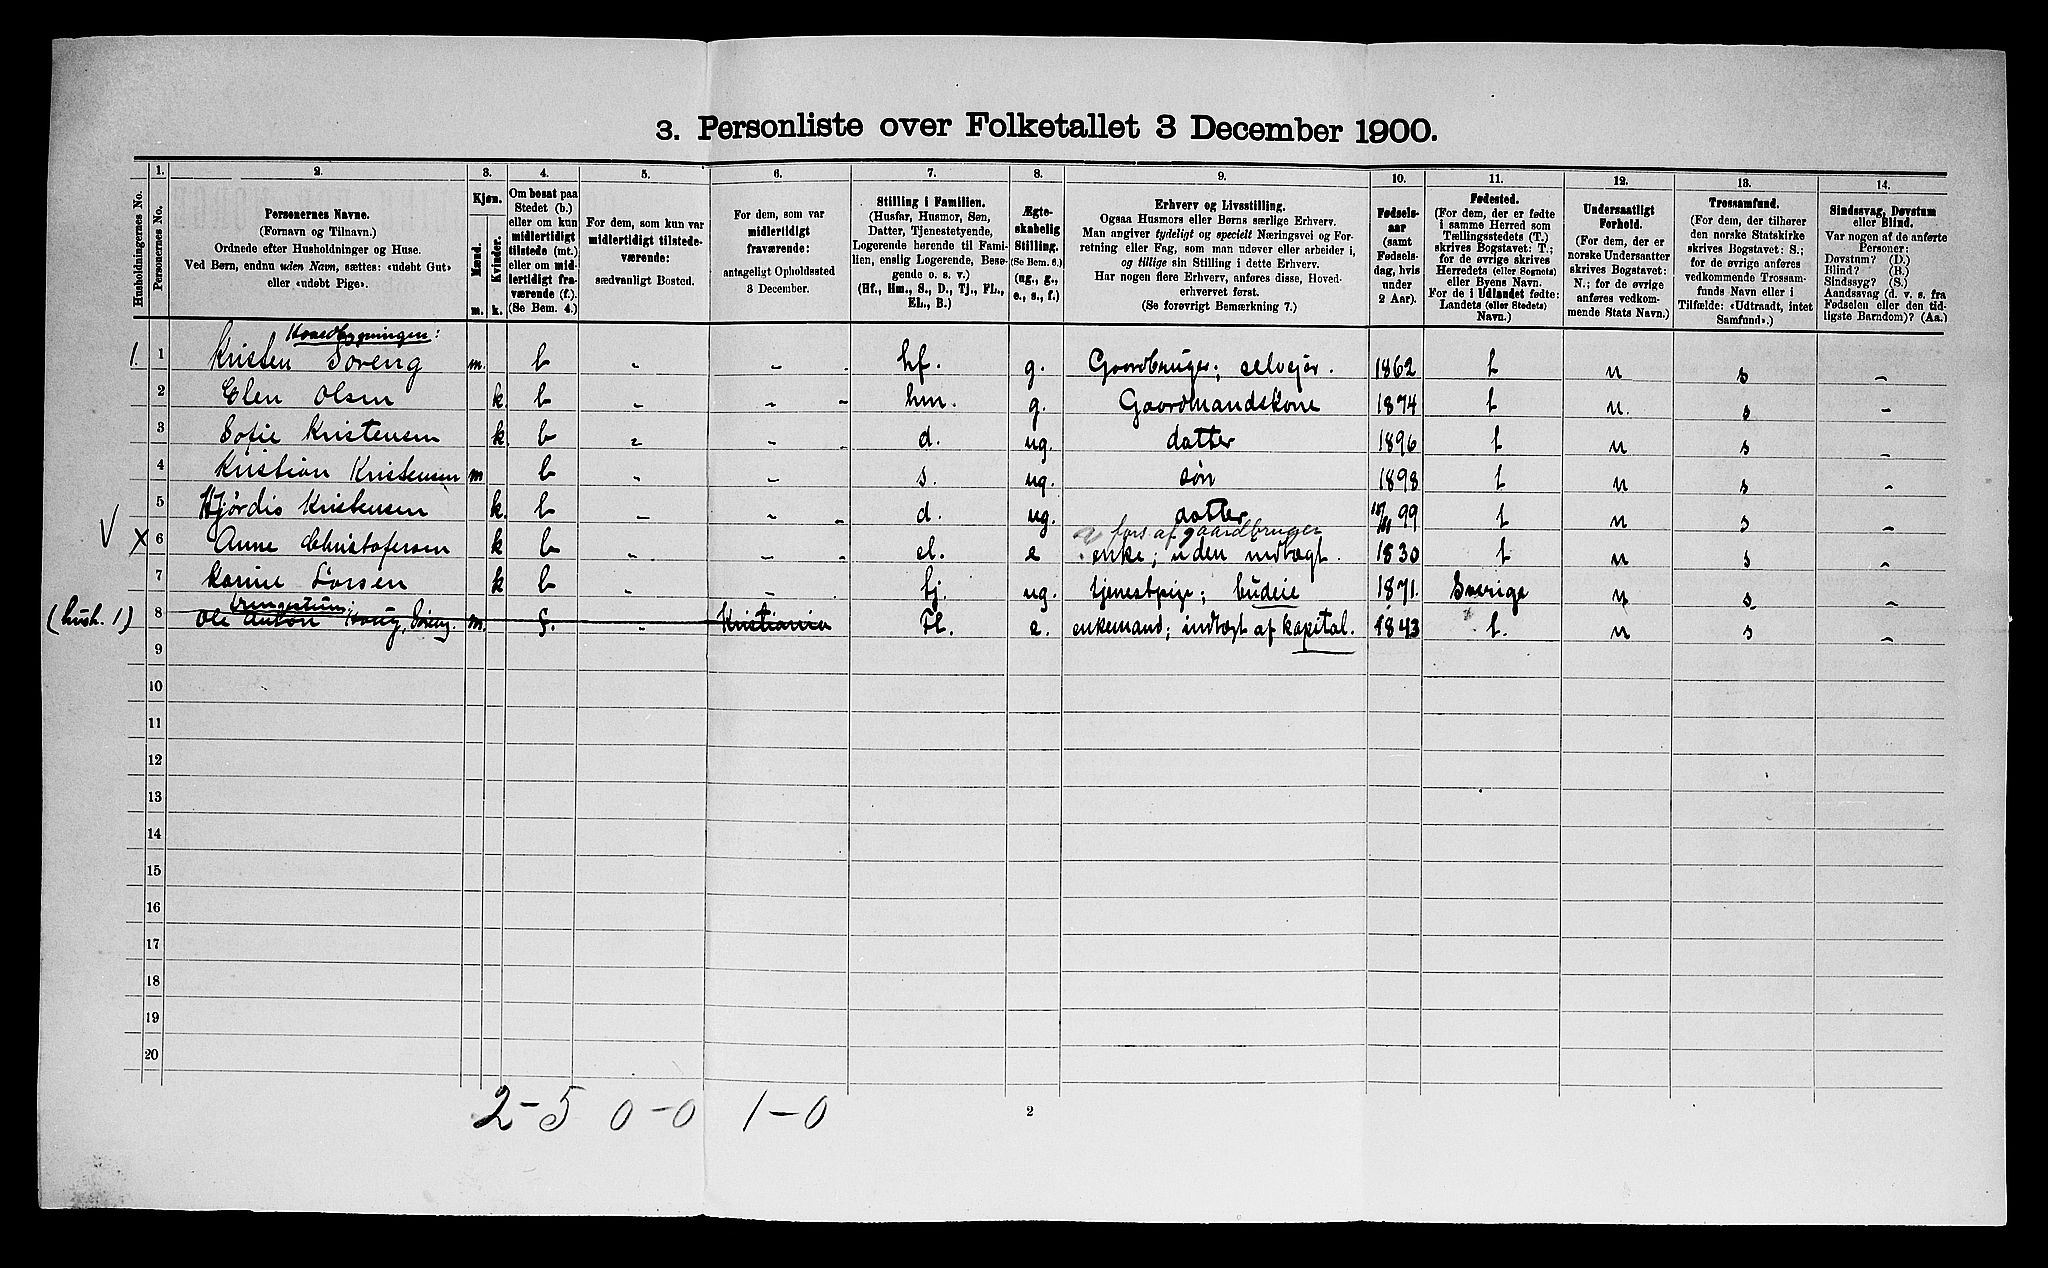 3. Personliste over Folketallet 3 December 1900.
Husholdningernes No.
1. Personernes No.
2. Personernes Navne.
(Fornavn og Tilnavn.)
Ordnede efter Husholdninger og Huse.
Ved Børn, endnu uden Navn, sættes: «udøbt Gut»
eller «udøbt Pige».
3. Kjøn.
Mænd. m.
Kvinder. k.
4. Om bosat paa
Stedet (b.)
eller om kun
midlertidigt
tilstede (mt.)
eller om mid-
lertidigt fra-
værende (f.).
(Se Bem. 4.)
5. For dem, som kun var
midlertidigt tilstede-
værende:
sædvanligt Bosted.
6. For dem, som var
midlertidigt
fraværende:
antageligt Opholdssted
3 December.
7. Stilling i Familien.
(Husfar, Husmor, Søn,
Datter, Tjenestetyende,
Logerende hørende til Fami-
lien, enslig Logerende, Besø-
gende o. s. v.)
(Hf., Hm., S., D., Tj., FL.,
EL., B.)
8. Ægte-
skabelig
Stilling.
(Se Bem. 6.)
(ug., g.,
e., s., f.)
9. Erhverv og Livsstilling.
Ogsaa Husmors eller Børns særlige Erhverv.
Man angiver tydeligt og specielt Næringsvei og For-
retning eller Fag, som man udøver eller arbeider i,
og tillige sin Stilling i dette Erhverv.
Har nogen flere Erhverv, anføres disse, Hoved-
erhvervet først.
(Se forøvrigt Bemærkning 7.)
10. Fødsels-
aar
(samt
Fødsels-
dag, hvis
under
2 Aar).
11. Fødested.
(For dem, der er fødte
i samme Herred som
Tællingsstedets (T.)
skrives Bogstavet: T.;
for de øvrige skrives
Herredets (eller Sognets)
eller Byens Navn.
For de i Udlandet fødte:
Landets (eller Stedets)
Navn.)
12. Undersaatligt
Forhold.
(For dem, der er
norske Undersaatter
skrives Bogstavet:
N.; for de øvrige
anføres vedkom-
mende Stats Navn.)
13. Trossamfund.
(For dem, der tilhører
den norske Statskirke
skrives Bogstavet: S.;
for de øvrige anføres
vedkommende Trossam-
funds Navn eller i
Tilfælde: «Udtraadt, intet
Samfund».)
14. Sindssvag, Døvstum
eller Blind.
Var nogen af de anførte
Personer:
Døvstum? (D.)
Blind? (B.)
Sindssyg? (S.)
Aandssvag (d. v. s. fra
Fødselen eller den tid-
ligste Barndom)? (Aa.)
Hovedbygningen:
1. 1 Kristen Soreng m. b - - hf. g. Gaardbruger; selveier. 1862 t n s -
2 Elen Olsen k. b - - hm. g. Gaardmandskone 1874 t n. s -
3 Sofie Kristensen k. b - - d. ug. datter 1896 t n s -
4 Kristian Kristensen m b - - s. ug. søn 1898 t n s -
5 Hjørdis Kristensen k. b - - d. ug. datter 99 t n s -
fors af gaardbruger
V x 6 Anne Christofersen k b - - el. e enke; uden indtægt. 1830 t n s -
7 Karine Larsen k b - - tj. ug. tjenestpige; budeie 1871. Sverige n s -
(hush. 1) 8 Ole Anton Haug, Soreng. m. f. - Kristiania Fl. e. enkemand; indtægt af kapital. 1843 t. n s -
9
10
11
12
13
14
15
16
17
18
19
20
2-5 0-0 1-0
2